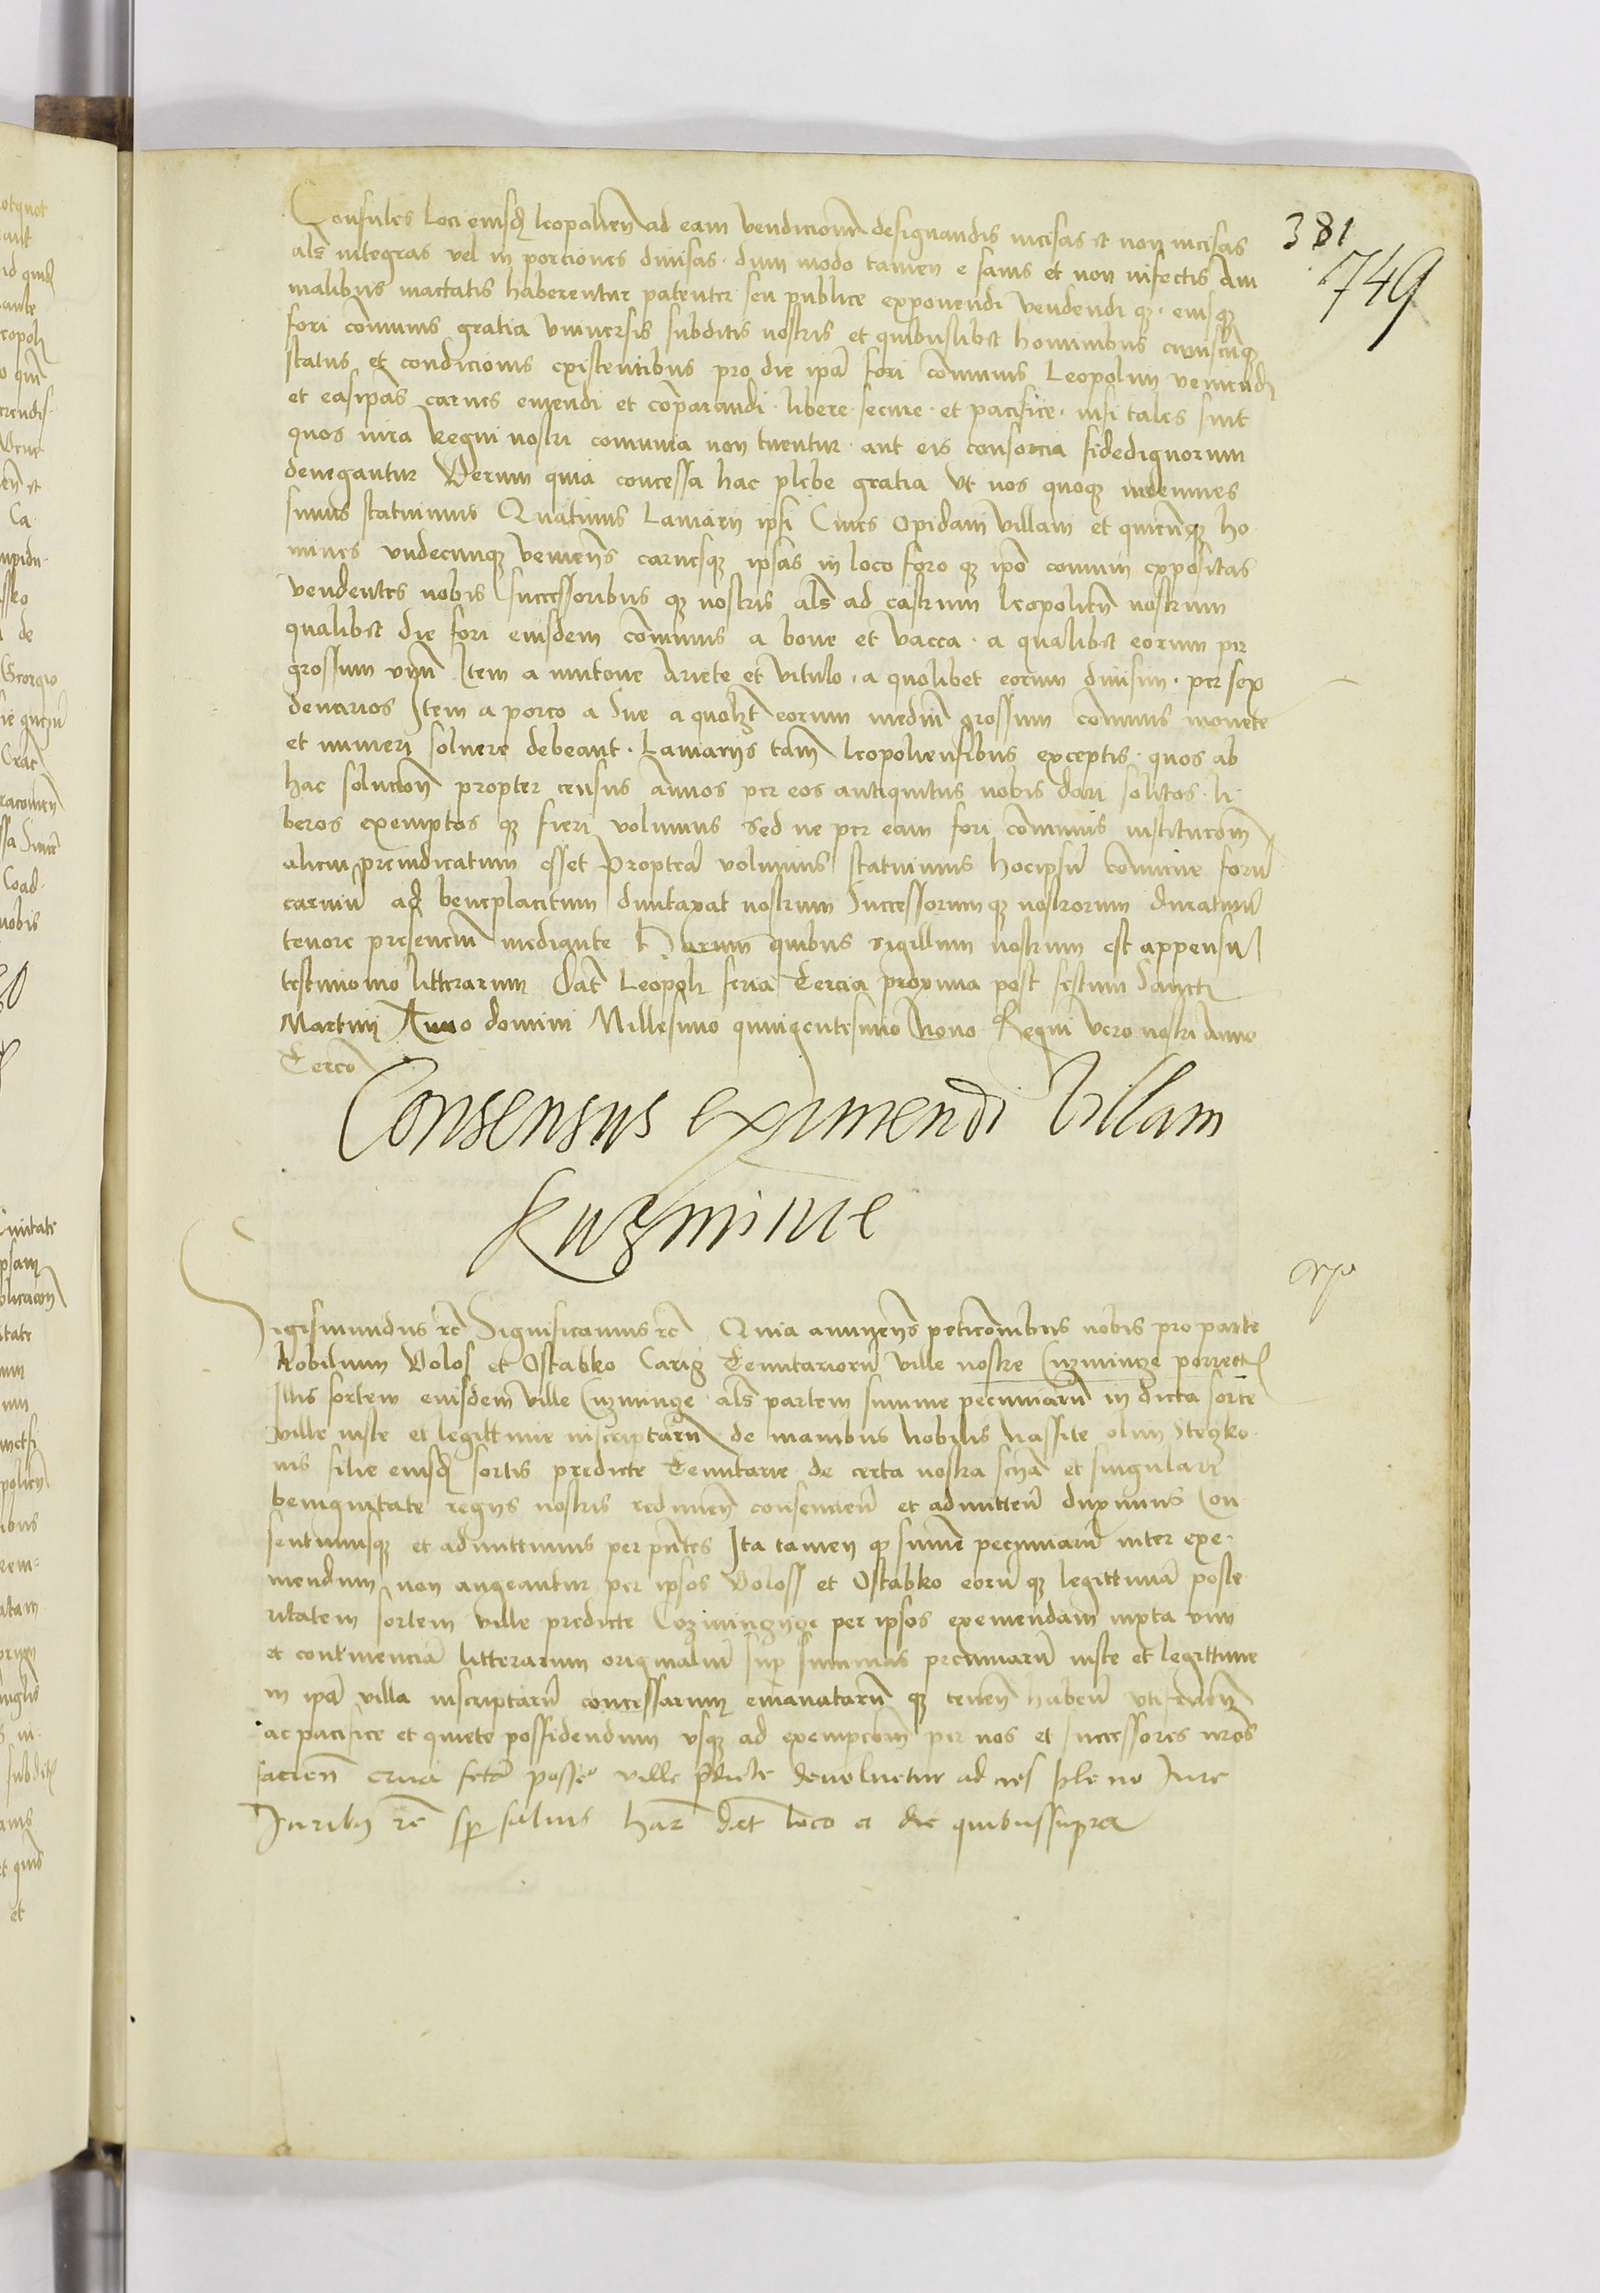 381
749
Consules loci eiusdē leopolien̄ ad eam vendicionē designandis incisas et non incisas
als̄ integras vel in porciones diuisas · dum modo tamen e sanis et non infectis Ani
malibus mactatis haberentur patenter seu publice exponendi vendendi qȝ · eiusqȝ
fori com̄unis gratia vniuersis subditis nostris et quibuslibet hominibus cuiuscūqȝ
status et condicionis existentibus pro die ip̄a fori com̄unis Leopolim veniendi
et easip̄as carnes emendi et com̄parandi · libere · secure · et pacifice · nisi tales sint
quos iura Regni nostri comunia non tuentur · aut eis consorcia fidedignorum
denegantur Verum quia concessa hac plebe gratia vt nos quoqȝ indemnes
simus statuimus Quatinus Laniarij ipsi Ciues Opidani villani et quicūqȝ ho
mines vndecunqȝ venien̄s carnesqȝ ipsas in loco foro qȝ ip̄o comuni expositas
vendentes nobis successoribus qȝ nostris als̄ ad castrum leopolien̄ nostrum
qualibet die fori eiusdem com̄unis a boue et vacca · a qualibet eorum per
grossum vnū Item a mutone Ariete et vitulo · a quolibet eorum diuisim · per sex
denarios Item a porco a Sue a quolȝt eorum mediū grossum com̄unis monete
et numeri soluere debeant · Laniarijs tam̄ leopoliensibus exceptis · quos ab
hac soluc̄ion̄ propter census annuos per eos antiquitus nobis dari solitos · li
beros exemptos qȝ fieri volumus Sed ne per eam fori com̄unis institucōm
alicui preiudicatum esset Proptea volumus statuimus hocipsū com̄une forū
carniū ad beneplacitum duntaxat nostrum Successorum qȝ nostrorum duraturū
tenore presenciū mediante Harum quibus sigillum nostrum est appensū
testimonio litterarum Dat̄ Leopoli feria Tercia proxima post festum Sancti
Martini Anno domini Millesimo quingentesimo Nono Regni vero nostri Anno
Tercō
Consensus eximendi Villam
Kuzmince
Sigismundus rc̄ Significamus rc̄ Quia annuen̄s peticōnibus nobis pro parte
Nobilium Volos et Ostabko Tenutariorū ville nostre Cuzmintze porrectis
Illis sortem eiusdem ville Cuzminge als̄ partem summe pecuniarū in dicta sorte
ville iuste et legittime inscriptarū de manibus Nobilis olim Steczko
nis filie eiusdē sortis predicte Tenutarie de certa nostra sciā et singulari
benignitate regijs nostris redimen̄ consencien̄ et admitten̄ duximus Con
sentimusqȝ et admittimus per pn̄tes Ita tamen qȝ sum̄e pecuniarū inter exe
mendum non augeantur per ipsos Voloss et Ostabko eorū qȝ legittimā poste
ritatem sortem ville predicte per ipsos exemendam iuxta vim
et continenciā litterarum originaliū sup summis pecuniarū iuste et legittime
in ip̄a villa inscriptarū concessarum emanatarū qȝ tenen̄ haben̄ vtifruen̄
ac pacifice et quiete possidendum vsqȝ ad exempcōm per nos et successores nr̄os
facien̄ posse ville p̄dicte deuoluetur ad nos pleno Iure
Iuribȝ rc̄ sp saluis har̄ dat̄ loco et die quibussupra